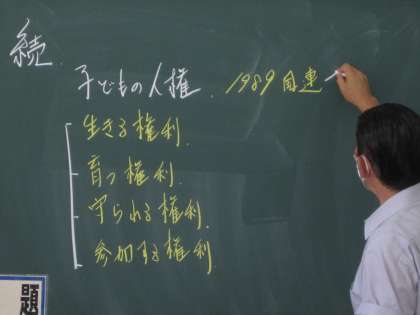 続
子どもの人権. 1989 国連
生きる権利.
育つ権利.
守られる権利.
参加する権利
題